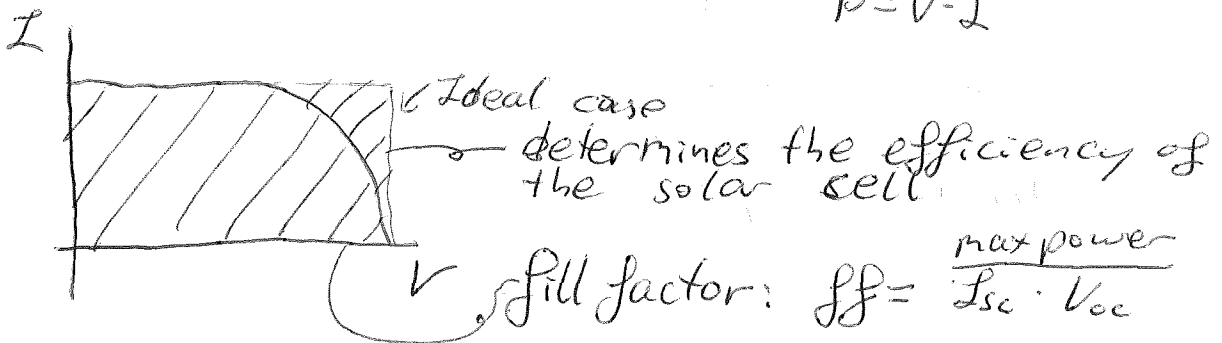 P = V·I
I
Ideal case
determines the efficiency of
the solar cell
V
fill factor: ff = max power / Isc · Voc